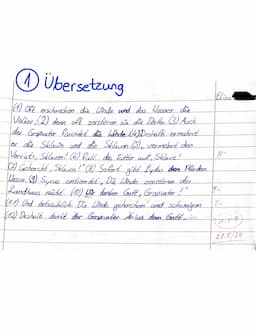 ① Übersetzung
(1) Oft erschrecken die Winde und das Wasser die
Völker. (2) denn oft zerstören sie die Dörfer. (3) Auch
der Grosvater fürchtet die Winde. (4) Deshalb ermahnt
er die Sklavin und die Sklaven: (5) „ vermehrt den
Vorrat, Sklaven! (6) Füll das Futter auf, Sklave!
(7) Gehorcht, Sklaven!" (8) Sofort gibt Lydus den Pferden
Wasser. (9) Syrus antwortet: „ Die Winde zerstören das
Landhaus nicht. (10) Wir danken Gott, Grosvater!"
(11) Und tatsächlich: Die Winde gehorchen und schweigen
(12) Deshalb dankt der Grosvater dem Gott.
N-
T-